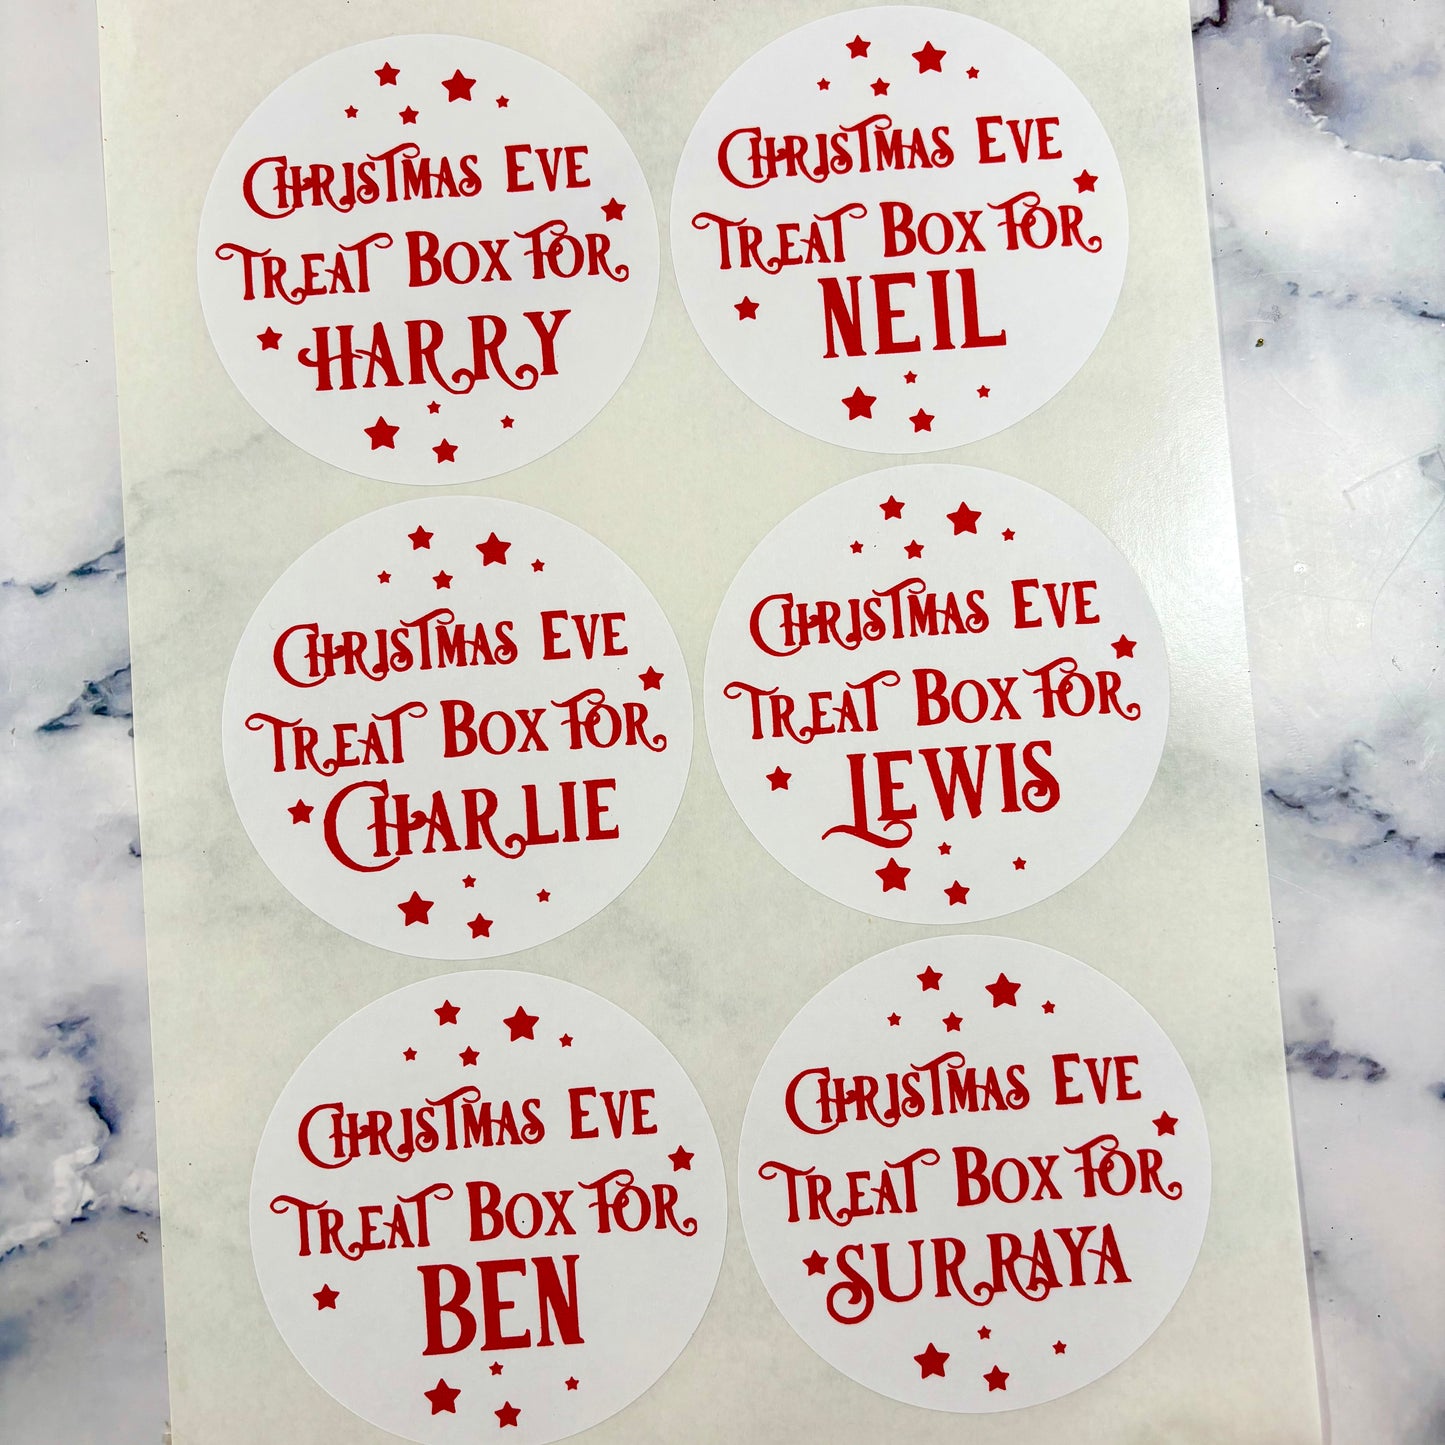 CHRISTMAS EVE
TREAT BOX FOR
HARRY
CHRISTMAS EVE
TREAT BOX FOR
NEIL
CHRISTMAS EVE
TREAT BOX FOR
CHARLIE
CHRISTMAS EVE
TREAT BOX FOR
LEWIS
CHRISTMAS EVE
TREAT BOX FOR
BEN
CHRISTMAS EVE
TREAT BOX FOR
SURRAYA